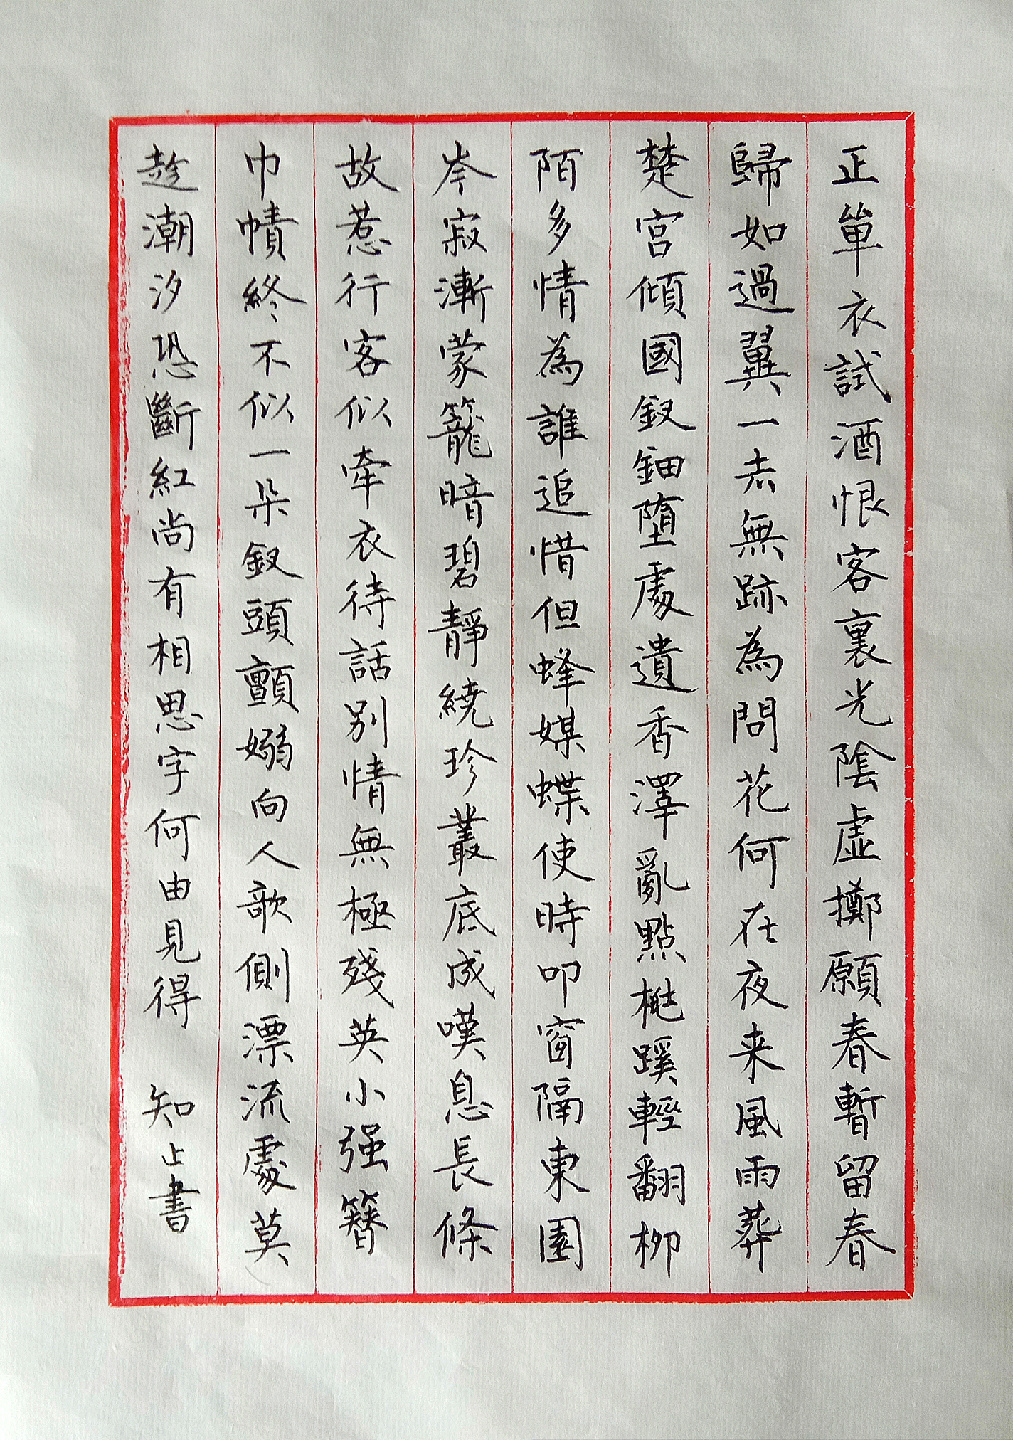 正單衣試酒恨客裏光陰虛擲願春暫留春
歸如過翼一去無跡為問花何在夜来風雨葬
楚宮傾國釵鈿墮處遺香澤亂點桃蹊輕翻柳
陌多情為誰追惜但蜂媒蝶使時叩窗隔東園
岑寂漸蒙籠暗碧靜繞珍叢底成嘆息長條
故惹行客似牽衣待話別情無極殘英小强簪
巾幘終不似一朵釵頭顫嫋向人欹側漂流處莫
趁潮汐恐斷紅尚有相思字何由見得 知止書